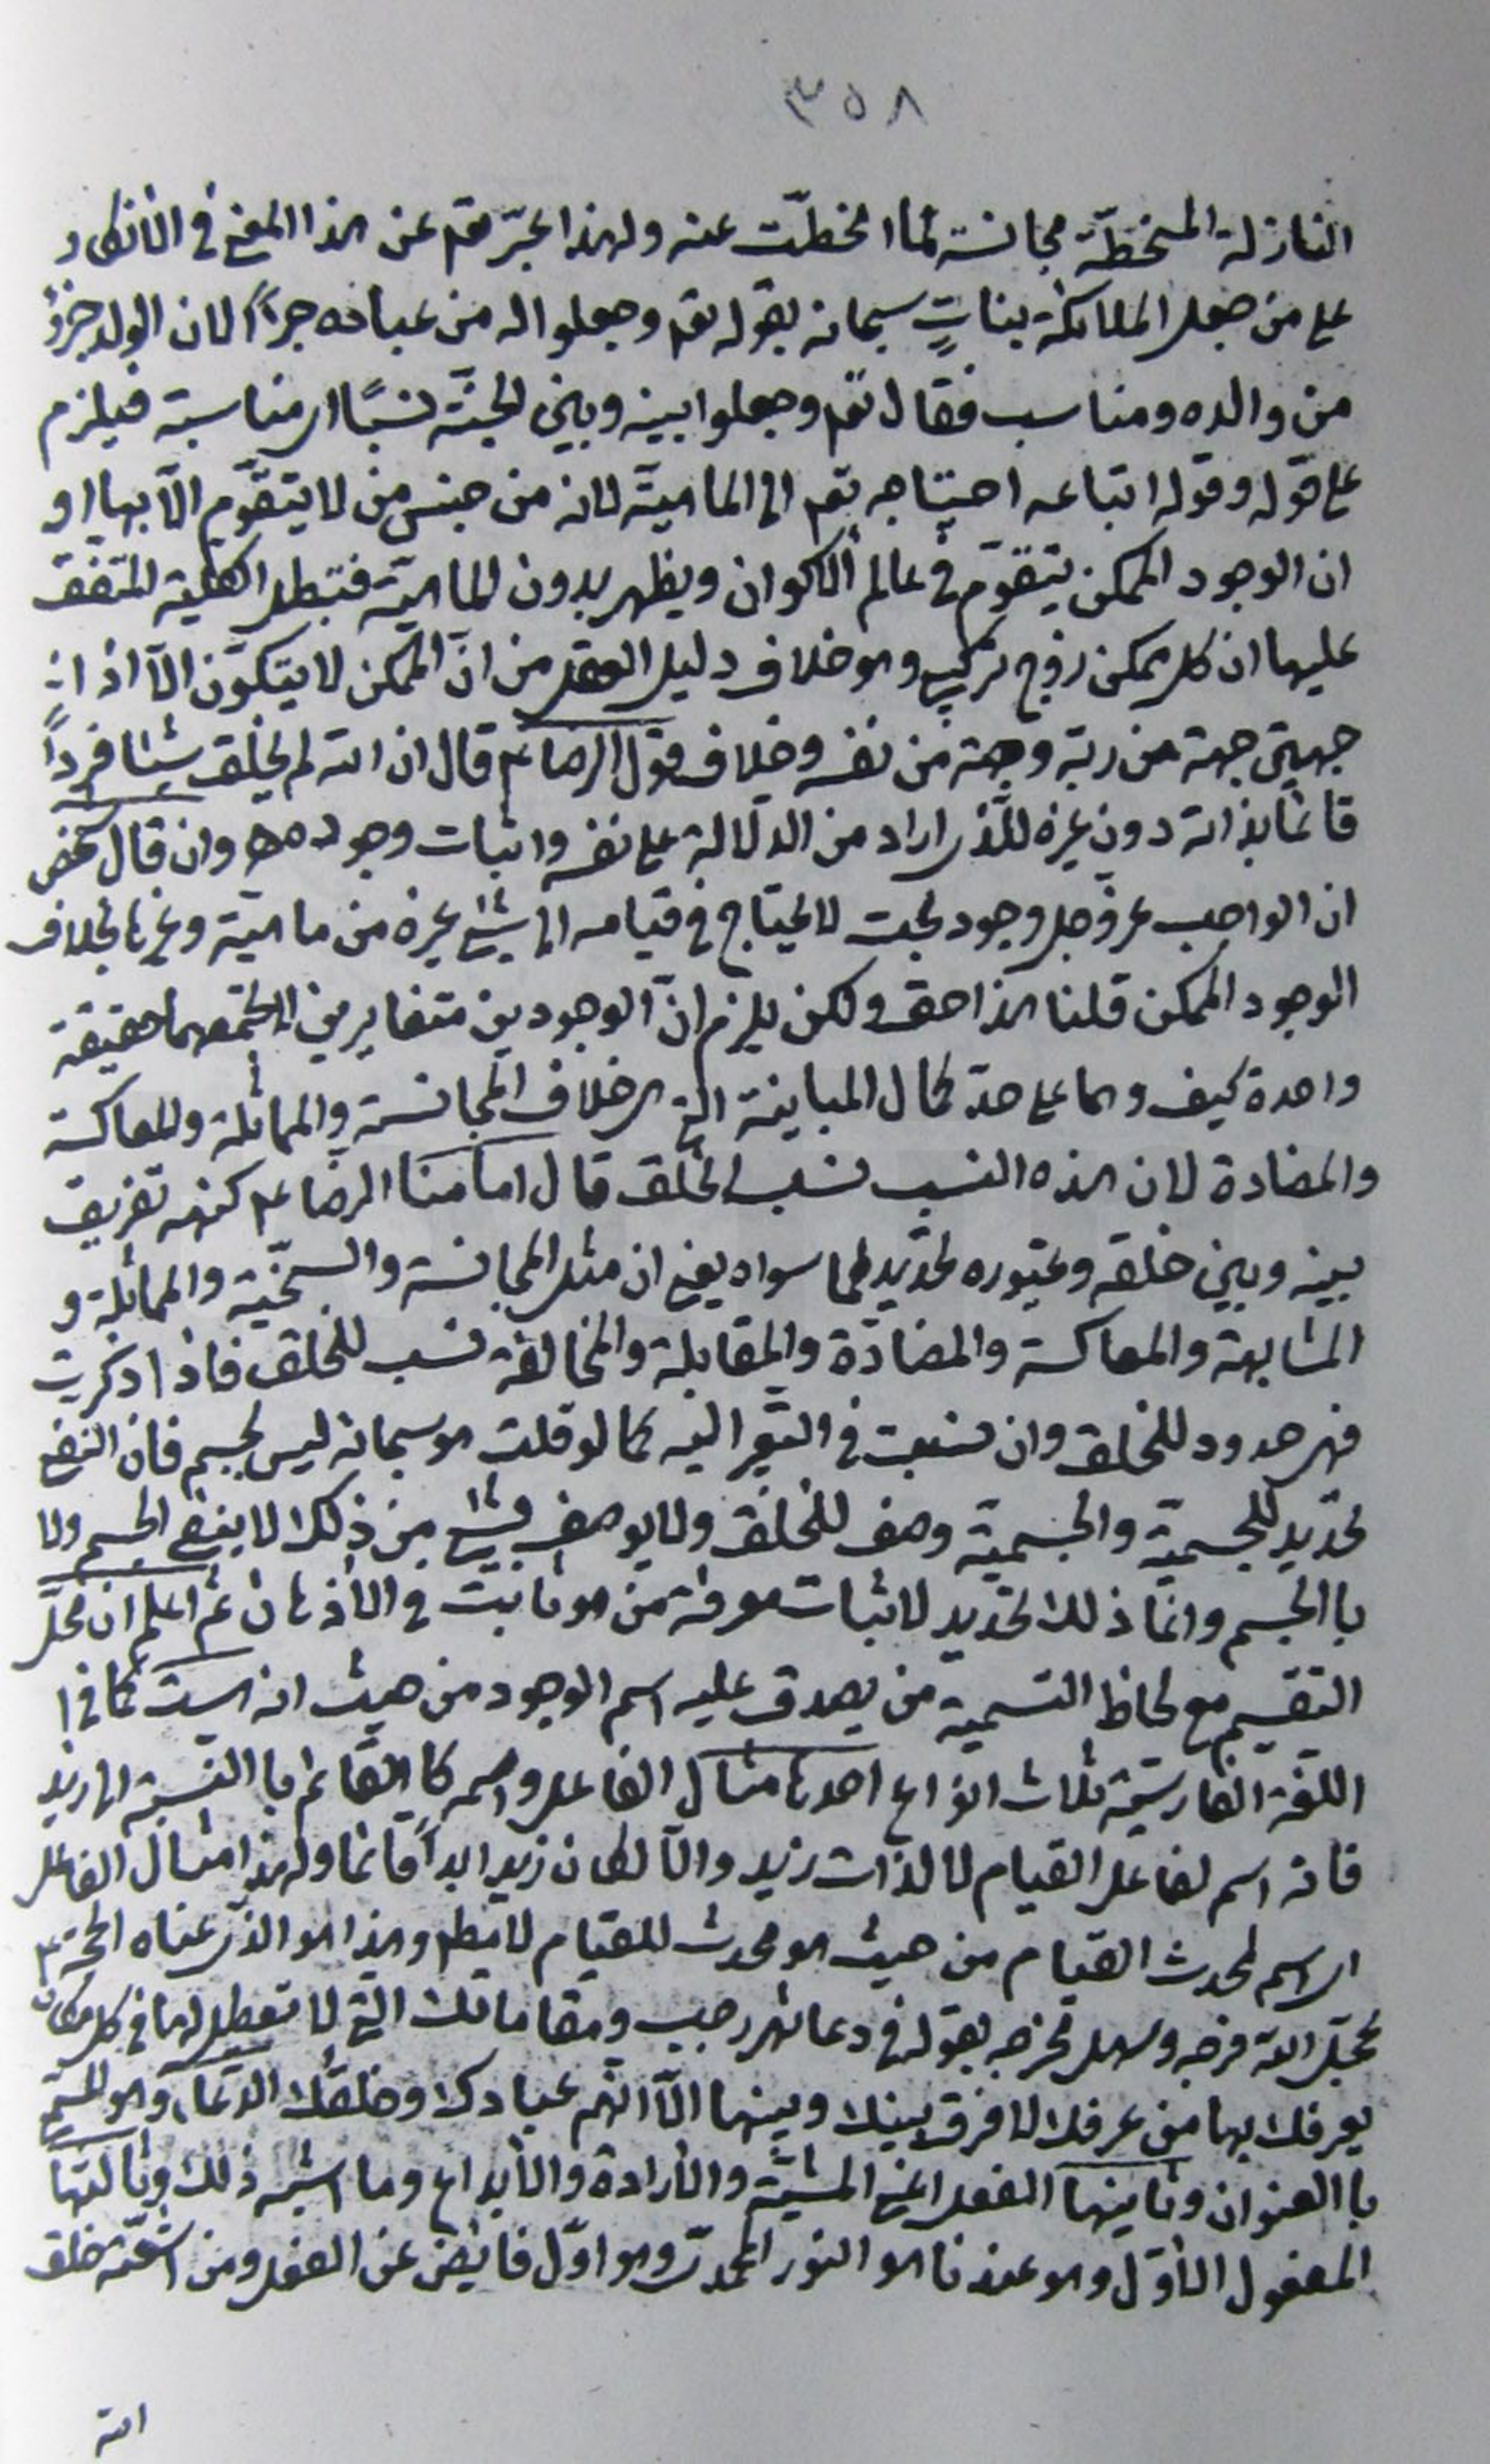 ٣٥٨
النازلة المنحطّة مجانسة لما انحطّت عنه ولهذا عبّر تعم عن هذا المعنى في الانكار
على من جعل الملائكة بناتٍ سبحانه بقوله تعم وجعلوا له من عباده جزءًا لان الولد جزؤ
من والده ومناسب فقال تعم وجعلوا بينه وبين الجنّة نسبًا اى مناسبة فيلزم
على قوله وقول اتباعه احتياجه تعم الى الماهيّة لانه من جنس من لا يتقوّم الّا بها او
ان الوجود الممكن يتقوّم في عالم الاكوان ويظهر بدون الماهيّة فتبطل الكلية المتفق
عليها ان كل ممكن زوج تركيبي وهو خلاف دليل العقل من انّ الممكن لا يتكوّن الّا اذ انه
جهتين جهة من ربّه وجهة من نفسه وخلاف قول الرضا ع قال ان الله لم يخلق شيئا فردًا
قائمًا بذاته دون غيره للّذى اراد من الدلالة على نفسه واثبات وجوده وان قال شخص
ان الواجب عز وجل وجود بحت لا يحتاج في قيامه الى شيئ غيره من ماهيّة وغيرها بخلاف
الوجود الممكن قلنا هذا حق ولكن يلزم انّ الوجودين متغايرين لا يجمعهما حقيقة
واحدة كيف وهما على حدّ كمال المباينة التي هى خلاف المجانسة والمماثلة والمعاكسة
والمضادة لان هذه النسب نسب الخلق قال امامنا الرضا ع كنهه تفريق
بينه وبين خلقه وغيوره تحديد لما سواه يعنى ان مثل المجانسة والسنخيّة والمماثلة و
المشابهة والمعاكسة والمضادّة والمقابلة والمخالفة نسب للخلق فاذا ذكرت
فهى حدود للخلق وان نسبت في التعبير اليه كما لو قلت هو سبحانه ليس بجسم فان النفى
تحديد للجسميّة والجسميّة وصف للخلق ولا يوصف بشيئ من ذلك لا بنفى الجسم ولا
با الجسم وانّما ذلك تحديد لاثبات معرفة من هو ثابت في الاذهان ثم اعلم ان محلّ
التقسيم مع لحاظ التسمية من يصدق عليه اسم الوجود من حيث انه است كما في ا
اللغة الفارسيّة ثلاث انواع احدها مثال الفاعل واسمه كا القائم با النسبة الى زيد
فانه اسم لفاعل القيام لا لذات زيد والّا لكان زيد ابداً قائما ولهذا مثال الفاعل
اى اسم لمحدث القيام من حيث هو محدث للقيام لا مطم وهذا هو الذى عناه الحجّة ع
عجّل الله فرجه وسهل مخرجه بقوله في دعا شهر رجب ومقاماتك التي لا تعطيل لها في كل مكان
يعرفك بها من عرفك لا فرق بينك وبينها الّا انهم عبادك وخلقك الدعاء وهو المسمّى
با العنوان وثانيها الفعل اعنى المشيّة والارادة والابداع وما اشبه ذلك وثالثها
المفعول الاوّل وهو عندنا هو النور المحمّدى وهو اوّل فايض عن الفعل ومن اشعّته خلق
الله